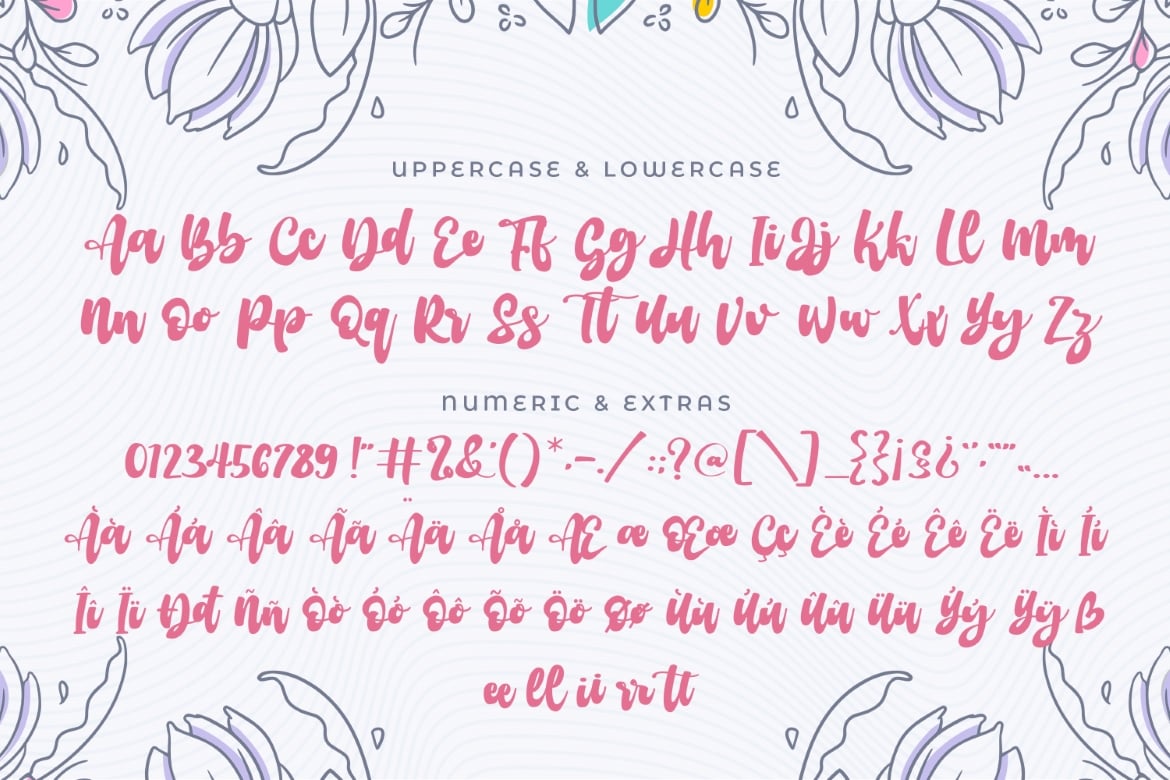 UPPERCASE & LOWERCASE
Aa Bb Cc Dd Ee Ff Gg Hh Ii Jj Kk Ll Mm
Nn Oo Pp Qq Rr Ss Tt Uu Vv Ww Xx Yy Zz
NUMERIC & EXTRAS
0123456789 !"#%&'()*,-./:;?@[\]_{}¡§¿¨·
Àà Áá Ââ Ãã Ää Åå Æ æ Œœ Çç Èè Éé Êê Ëë Ìì Íí
Îî Ïï Đđ Ññ Òò Óó Ôô Õõ Öö Øø Ùù Úú Ûû Üü Ýý Ÿÿ ß
ee ll ii rr tt